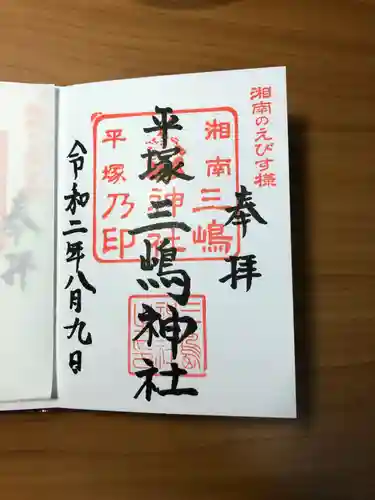 湘南のえびす様
奉拝
平塚三嶋神社
令和二年八月九日
湘南三嶋
神社
平塚乃印